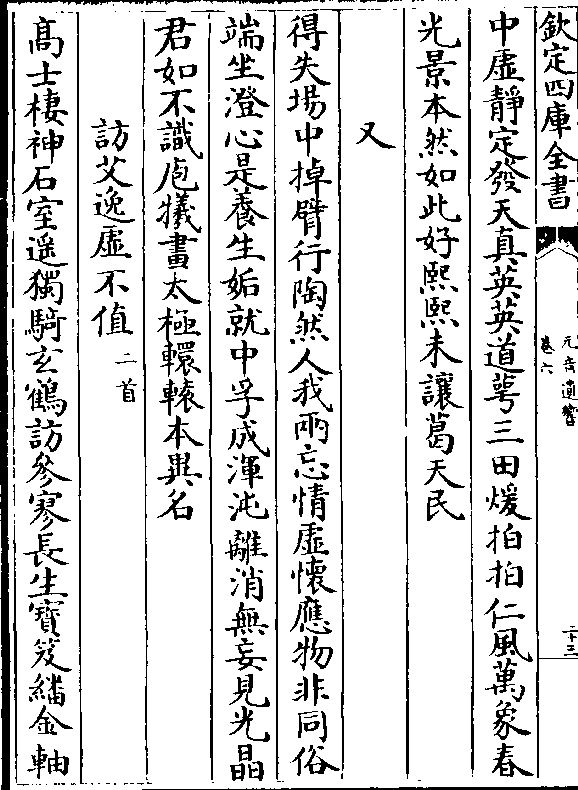 欽定四庫全書
元音遺響
卷六
二十三
中虛靜定發天真英英道萼三田煖拍拍仁風萬象春
光景本然如此好熙熙未讓葛天民
又
得失場中掉臂行陶然人我兩忘情虛懷應物非同俗
端坐澄心是養生姤就中孚成渾沌離消無妄見光晶
君如不識庖犧畫太極轘轅本異名
訪艾逸虛不值二首
高士棲神石室遥獨騎玄鶴訪參寥長生寶笈繙金軸